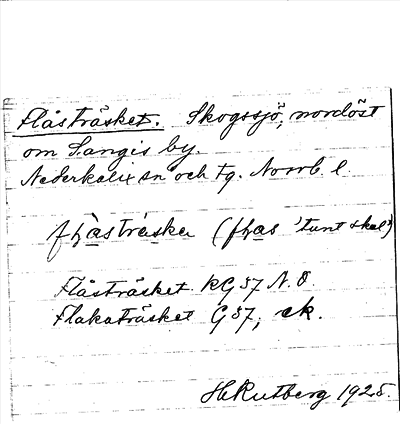 Flåsträsket. Skogssjö, nordöst
om Sangis by.
Nederkalix sn och tg. Norrb. l.
(flas 'tunt skal')
Flåsträsket KG 37 N.O.
Flakaträsket G 37, ek.
H Rutberg 1925.